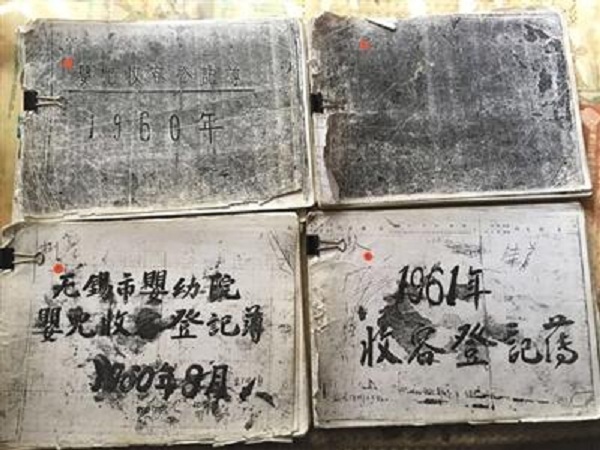 嬰児收容登記簿
1960年
无錫市嬰幼院
嬰児收容登記薄
1960年8月
1961年
收容登記薄